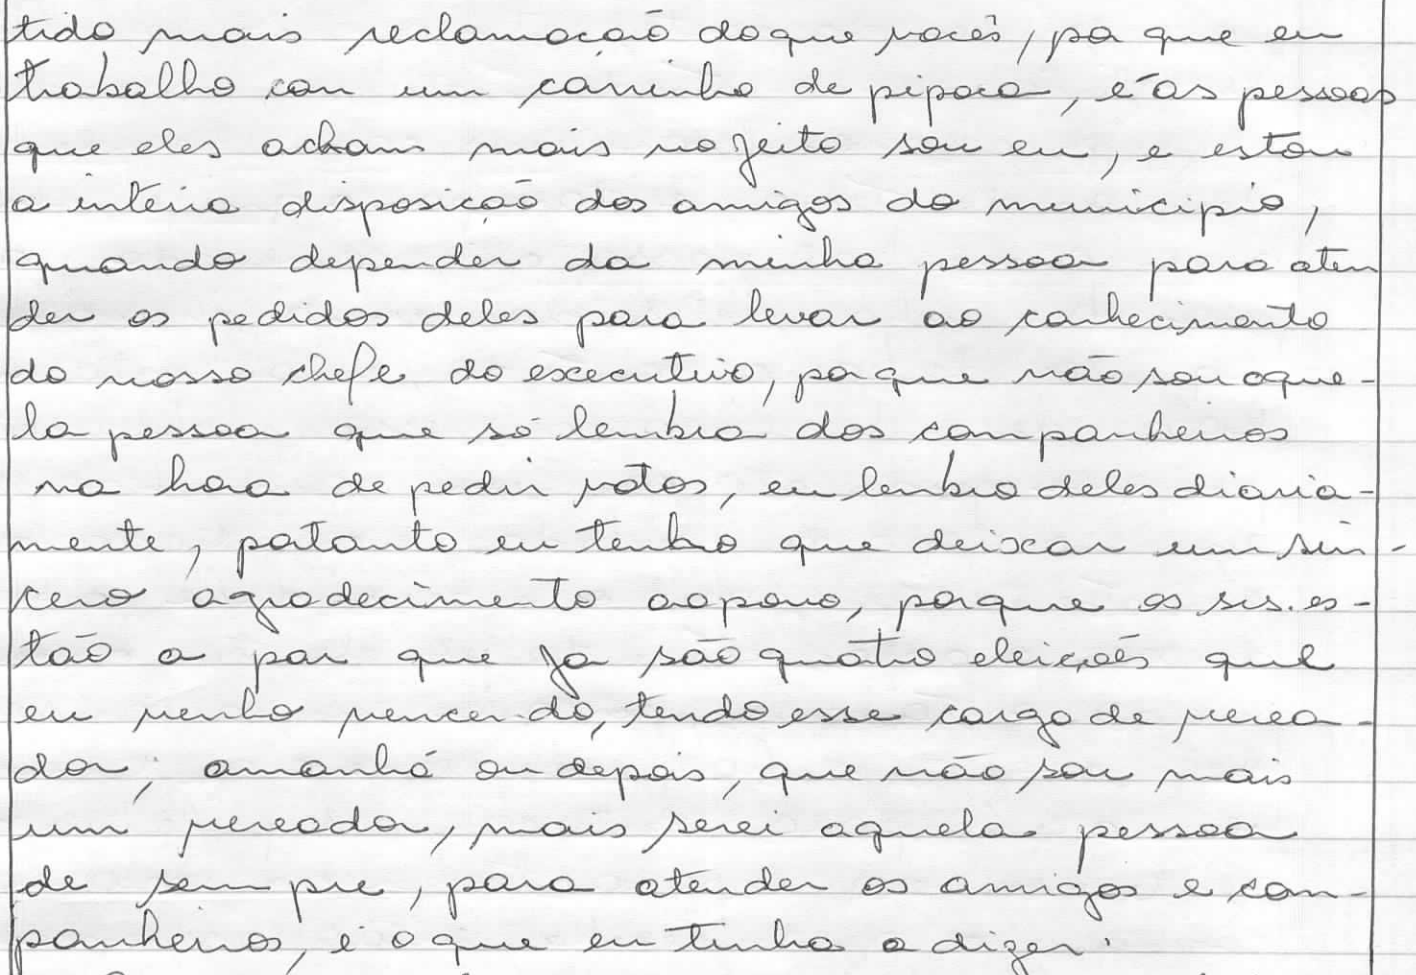 tido mais reclamação do que vocês, por que eu
trabalho com um carrinho de pipoca, e as pessoas
que eles acham mais no jeito sou eu, e estou
a inteira disposição dos amigos do municipio,
quando depender da minha pessoa para aten
der os pedidos deles para levar ao conhecimento
do nosso chefe do executivo, porque não sou aque-
la pessoa que só lembra dos companheiros
na hora de pedir votos, eu lembro deles diaria-
mente, portanto eu tenho que deixar um sin-
cero agradecimento ao povo, porque os srs. es-
tão a par que já são quatro eleições que
eu venho vencendo, tendo esse cargo de verea-
dor, amanhã ou depois, que não sou mais
um vereador, mais serei aquela pessoa
de sempre, para atender os amigos e com-
panheiros, é o que eu tinha a dizer.